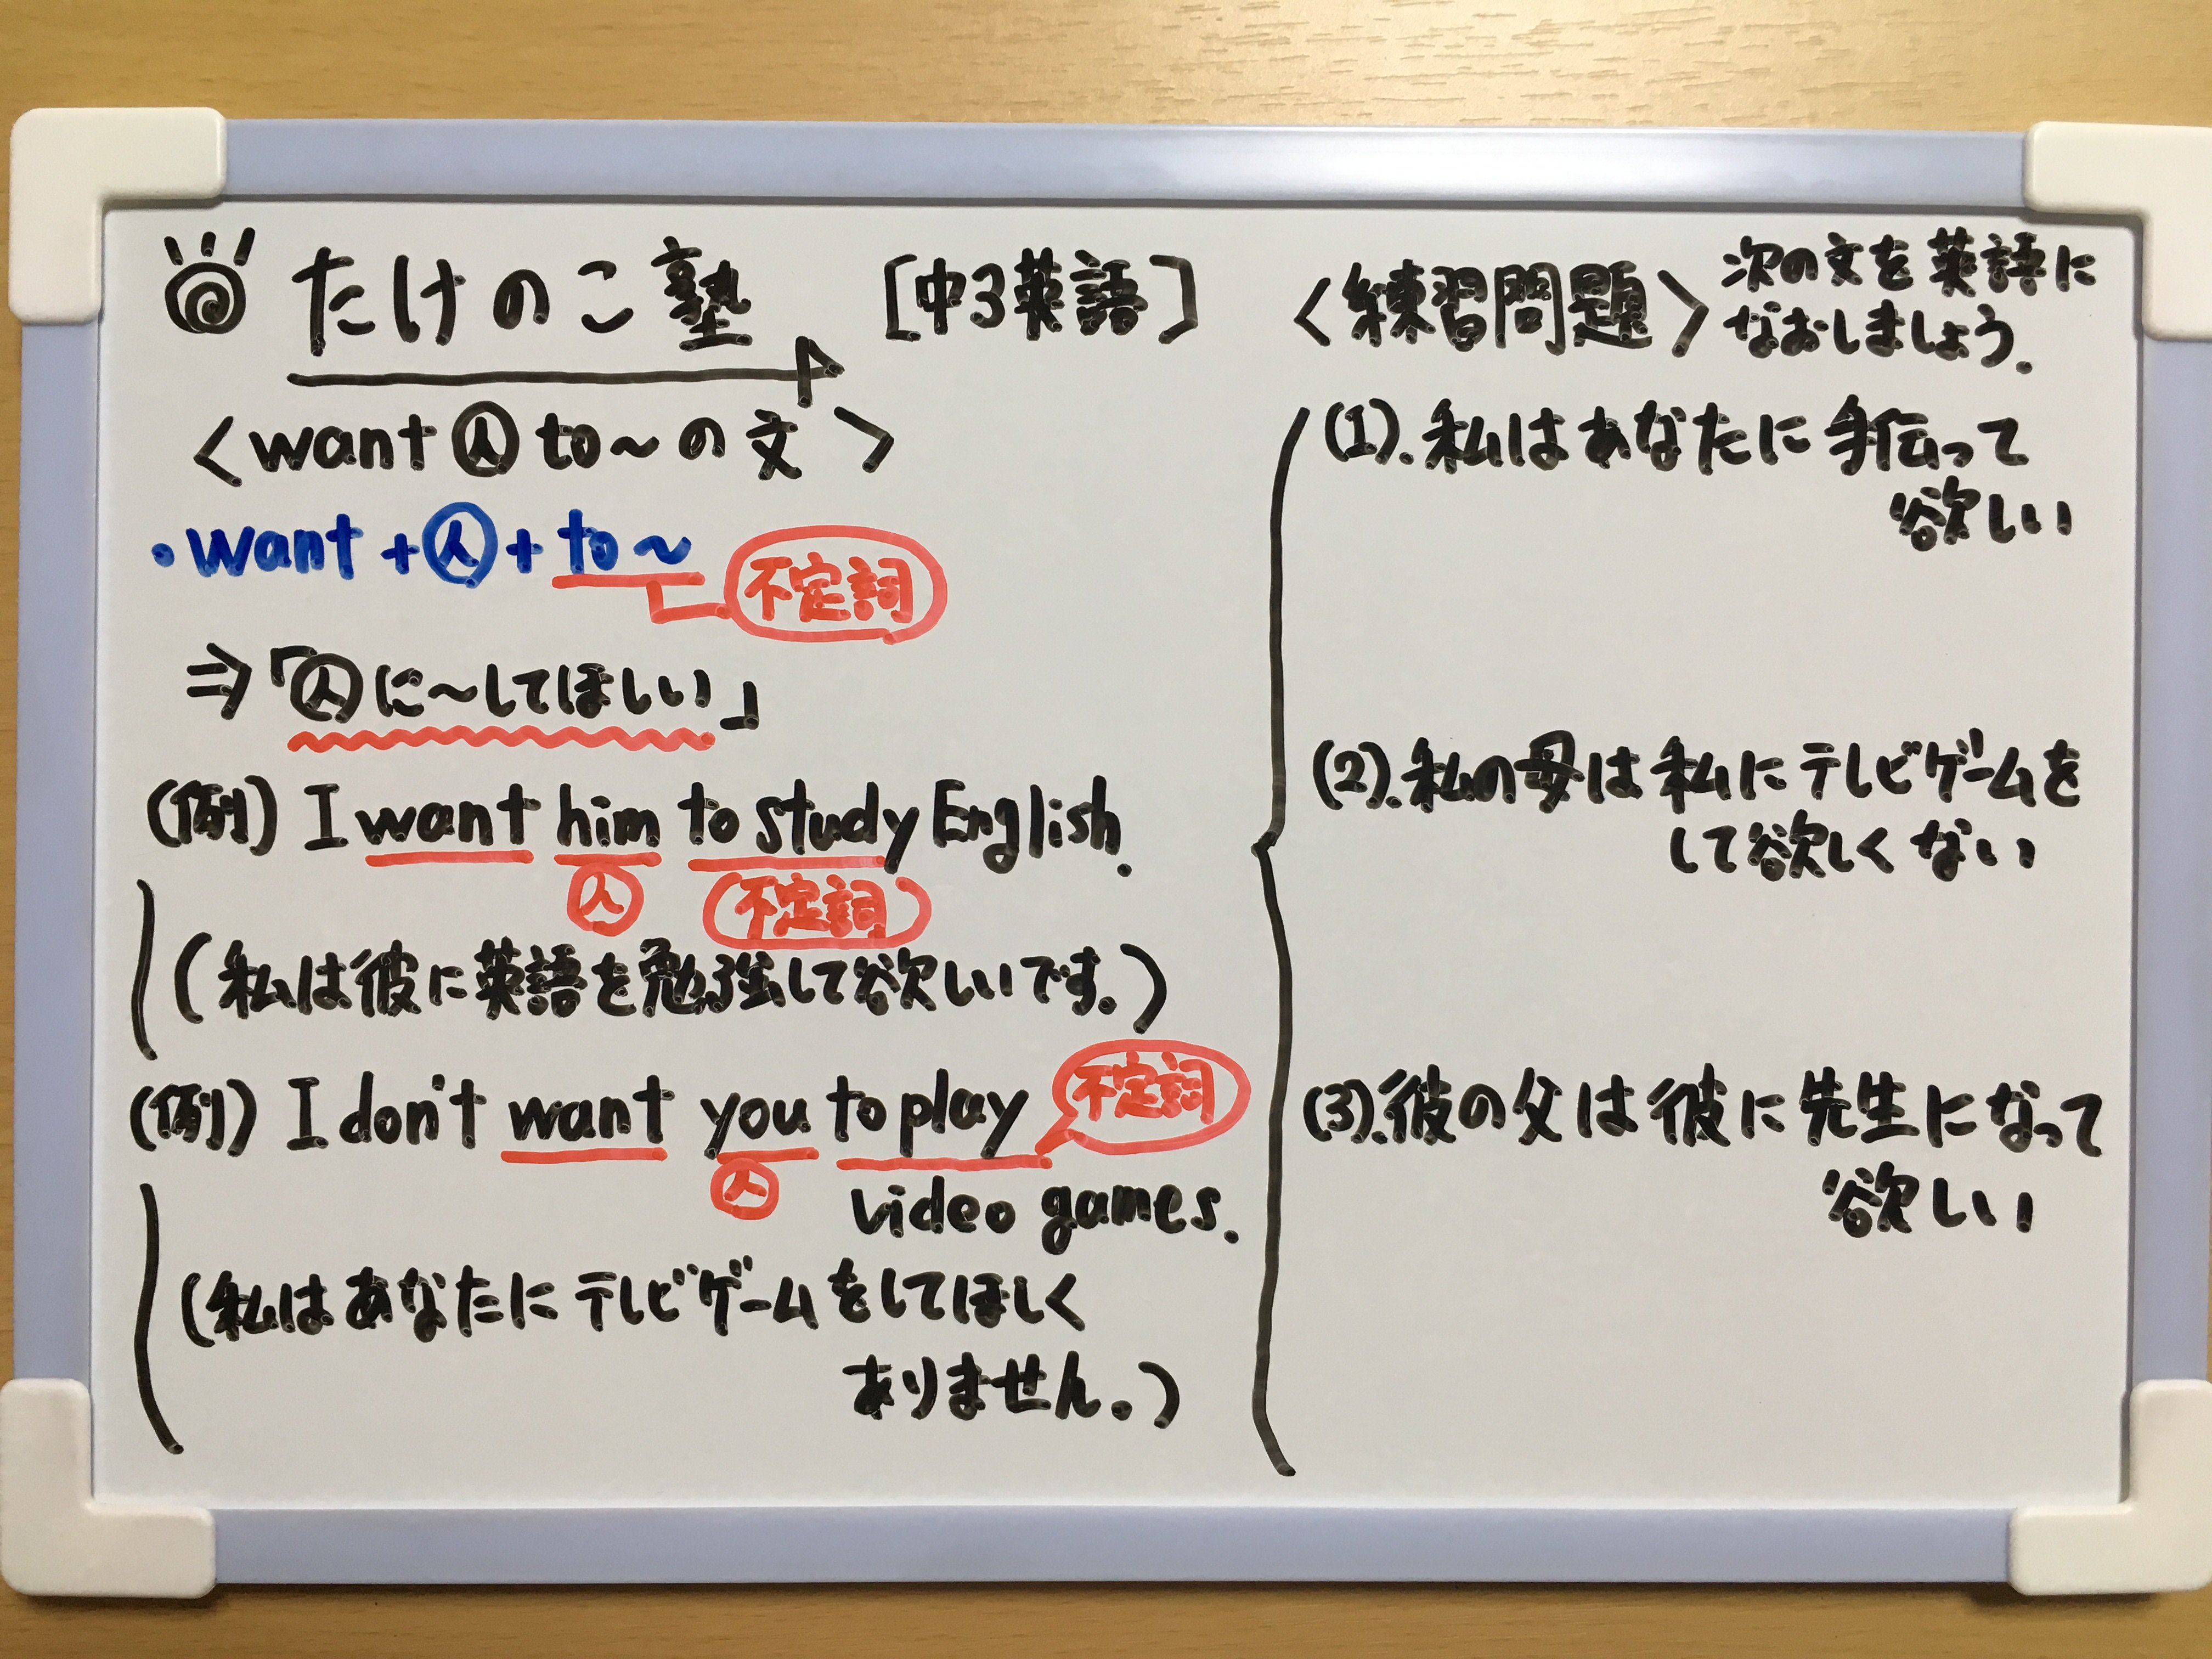 たけのこ塾 [中3英語]
<want 人 to~の文>
・want+人+to~
不定詞
⇒「人に~してほしい」
(例) I want him to study English.
人 (不定詞)
(私は彼に英語を勉強して欲しいです。)
(例) I don't want you to play
不定詞
人
video games.
(私はあなたにテレビゲームをしてほしく
ありません。)
<練習問題> 次の文を英語に
なおしましょう.
(1).私はあなたに手伝って
欲しい
(2).私の母は私にテレビゲームを
して欲しくない
(3).彼の父は彼に先生になって
欲しい